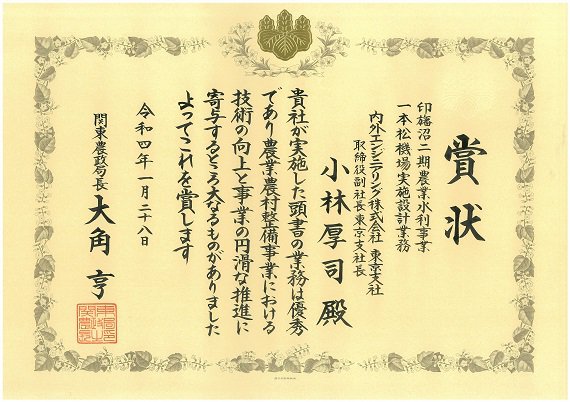 賞状
印旛沼二期農業水利事業
一本松機場実施設計業務
内外エンジニアリング株式会社 東京支社
取締役副社長東京支社長
小林厚司殿
貴社が実施した頭書の業務は優秀
であり農業農村整備事業における
技術の向上と事業の円滑な推進に
寄与するところ大なるものがありました
よってこれを賞します
令和四年一月二十八日
関東農政局長 大角亨